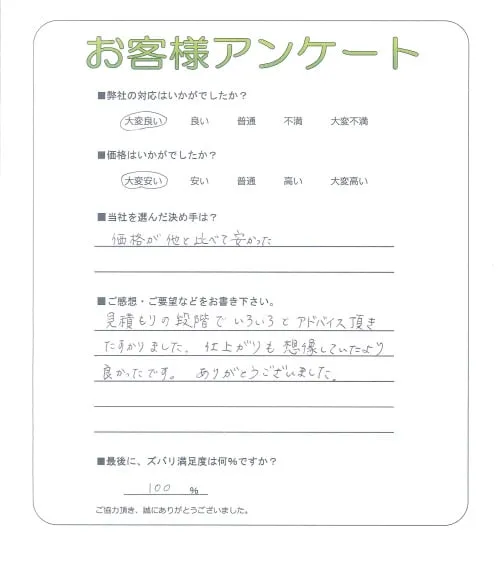 お客様アンケート
■弊社の対応はいかがでしたか？
大変良い 良い 普通 不満 大変不満
■価格はいかがでしたか？
大変安い 安い 普通 高い 大変高い
■当社を選んだ決め手は？
価格が他と比べて安かった
■ご感想・ご要望などをお書き下さい。
見積もりの段階でいろいろとアドバイス頂き
たすかりました。仕上がりも想像していたより
良かったです。ありがとうございました。
■最後に、ズバリ満足度は何%ですか？
100 %
ご協力頂き、誠にありがとうございました。